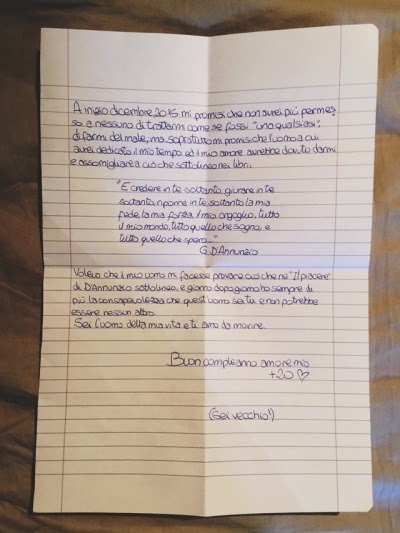 A inizio dicembre 2015 mi promisi che non avrei più permes
so a nessuno di trattarmi come se fossi "una qualsiasi",
di farmi del male, ma soprattutto mi promisi che l'uomo a cui
avrei dedicato il mio tempo ed il mio amore avrebbe dovuto darmi
e assomigliare a ciò che sottolineo nei libri.
"E credere in te soltanto, giurare in te
soltanto, riporre in te soltanto la mia
fede, la mia forza, il mio orgoglio, tutto
il mio mondo, tutto quello che sogno, e
tutto quello che spero..."
G. D'Annunzio
Volevo che il mio uomo mi facesse provare ciò che ne "Il piacere"
di D'Annunzio sottolineo, e giorno dopo giorno ho sempre di
più la consapevolezza che quest'uomo sei tu e non potrebbe
essere nessun altro.
Sei l'uomo della mia vita e ti amo da morire.
Buon compleanno amore mio
+20 ♡
(Sei vecchio!)